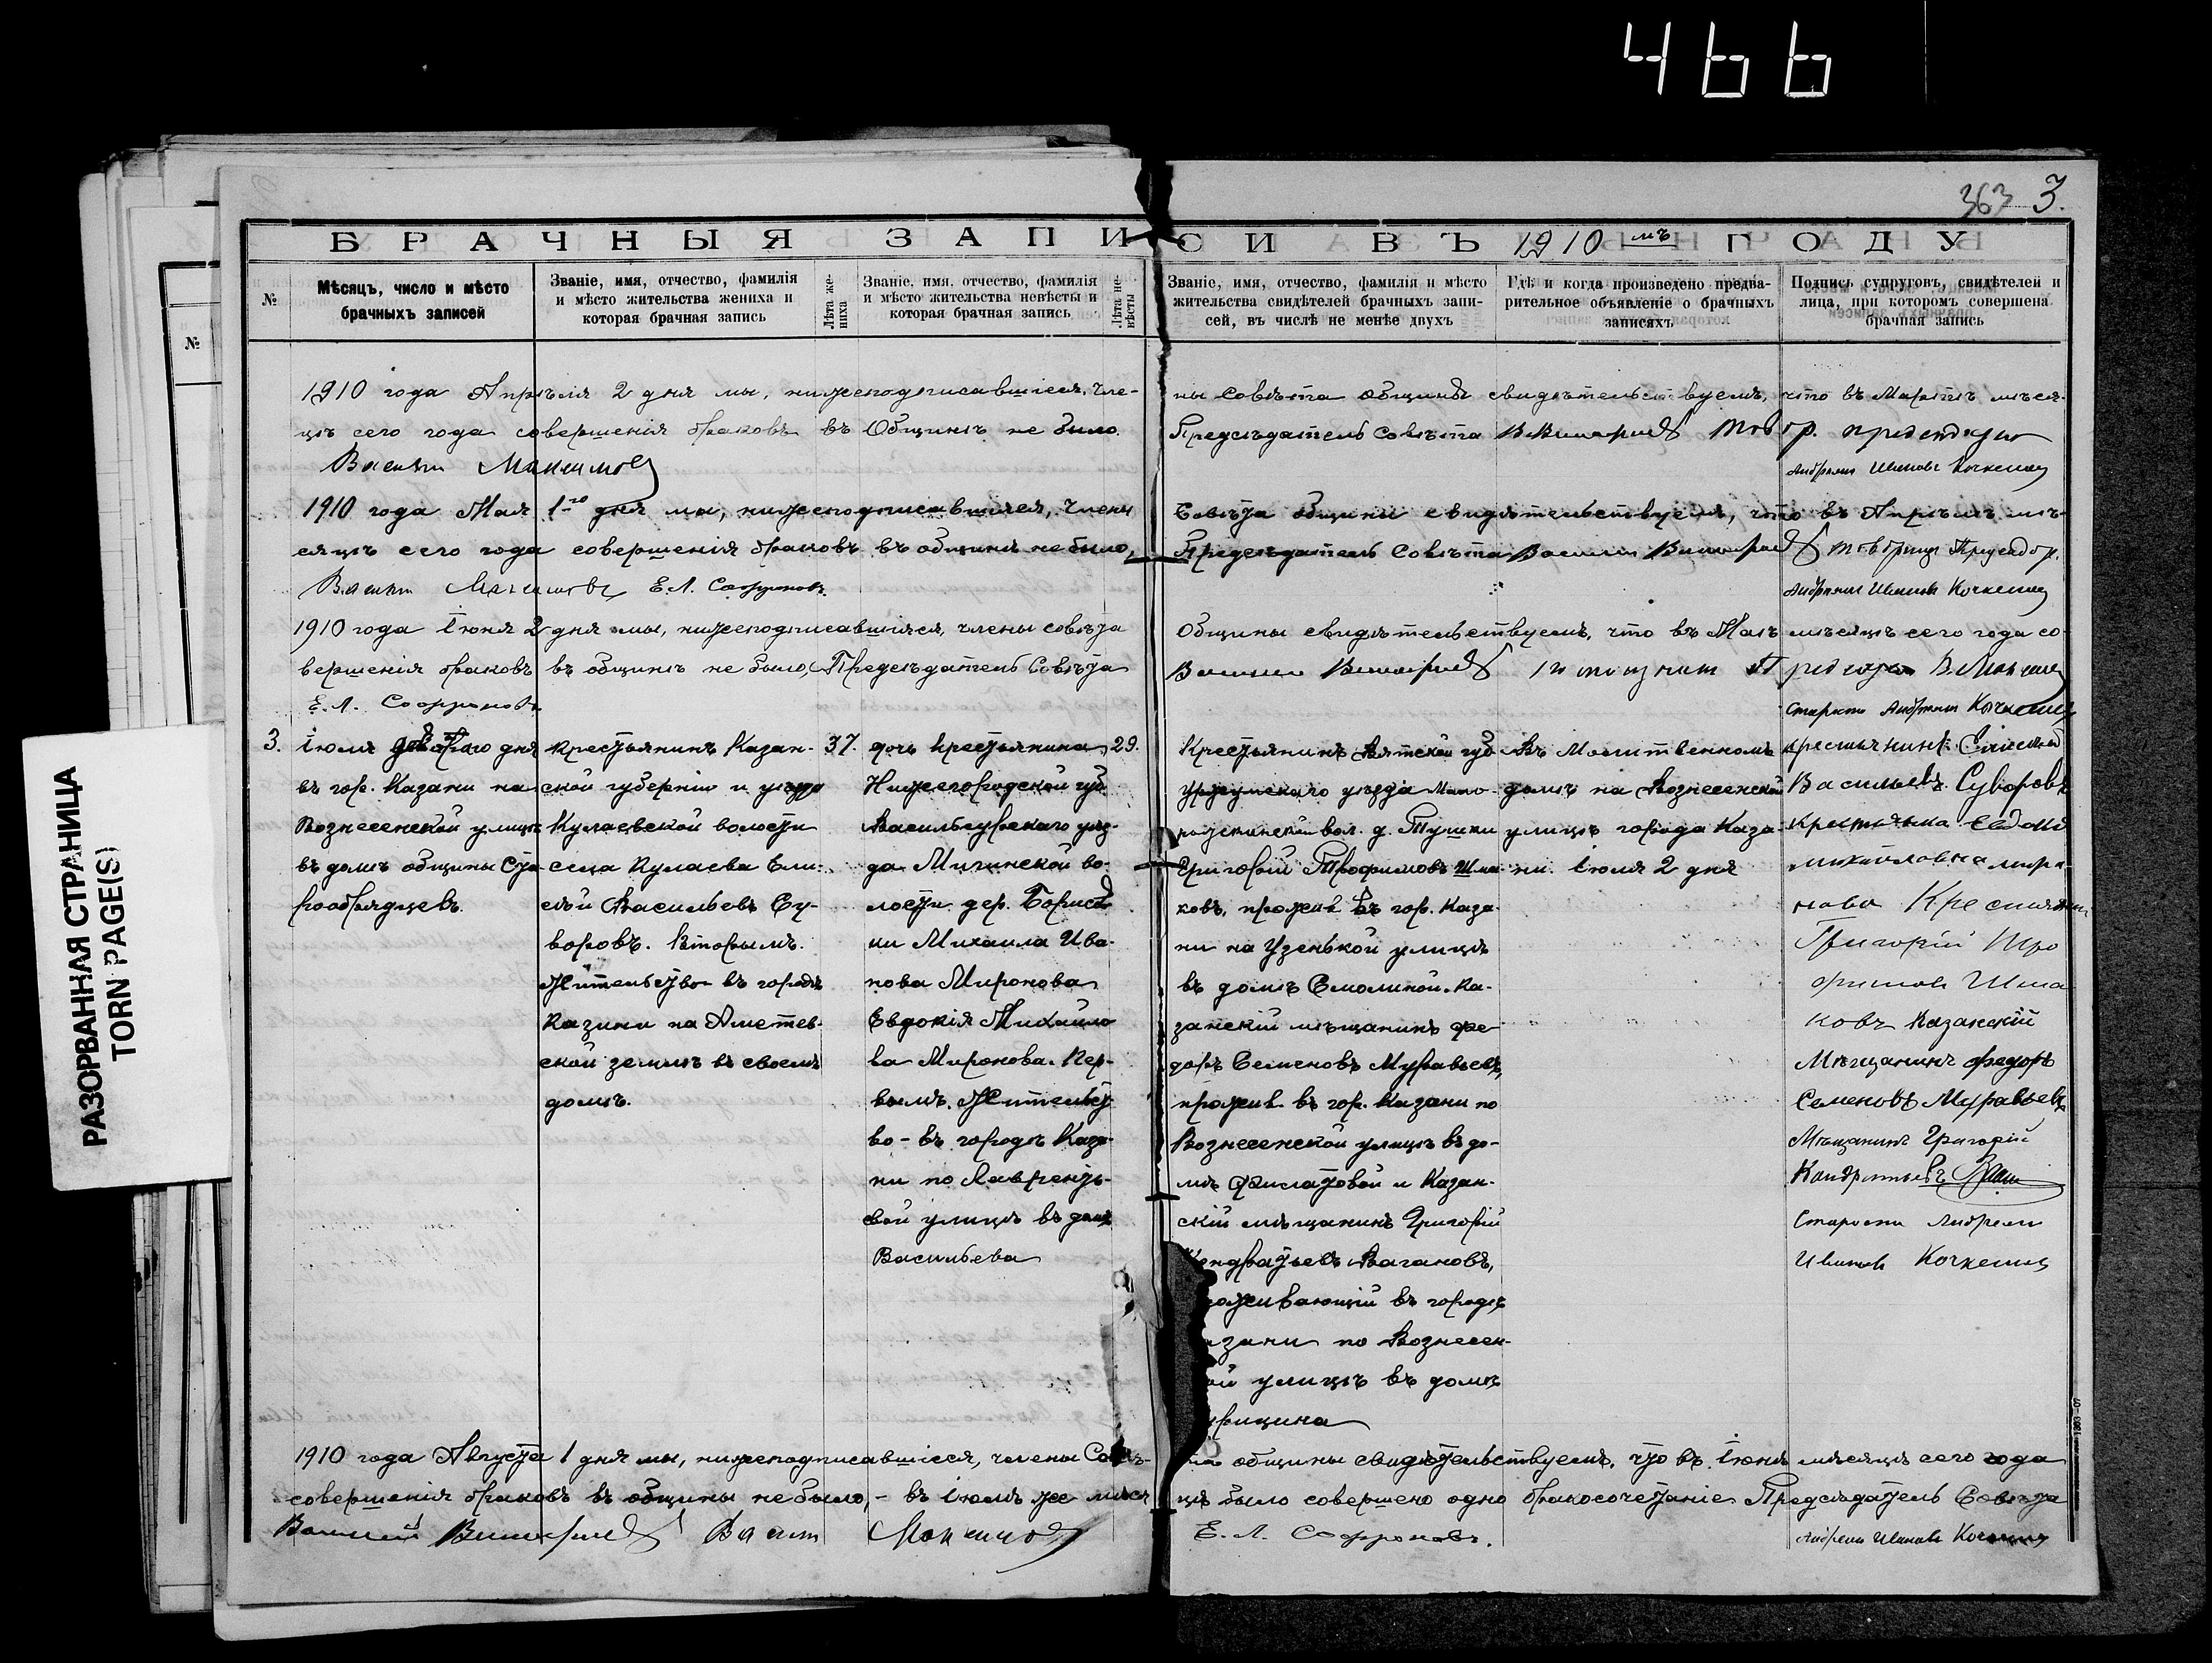 466
363 3.
РАЗОРВАННАЯ СТРАНИЦА
TORN PAGE(S)
БРАЧНЫЯ ЗАПИСИ ВЪ 1910 мъ ГОДУ
№
№
Мѣсяцъ, число и мѣсто
брачныхъ записей
Званіе, имя, отчество, фамилія
и мѣсто жительства жениха и
которая брачная запись
Лѣта же-
ниха
Званіе, имя, отчество, фамилія
и мѣсто жительства невѣсты и
которая брачная запись
Лѣта не-
вѣсты
Званіе, имя, отчество, фамилія и мѣсто
жительства свидѣтелей брачныхъ запи-
сей, въ числѣ не менѣе двухъ
Гдѣ и когда произведено предва-
рительное объявленіе о брачныхъ
записяхъ
Подпись супруговъ, свидѣтелей и
лица, при которомъ совершена
брачная запись
1910 года Апрѣля 2 дня мы, нижеподписавшіеся, чле-
ны Совѣта Общины свидѣтельствуемъ, что въ Мартѣ мѣся-
цѣ сего года совершенія браковъ въ Общинѣ не было.
Предсѣдатель Совѣта
Максимов
Андреян Иванов Кочкетов
1910 года Мая 1го дня мы, нижеподписавшіеся, члены
Совѣта общины свидѣтельствуемъ, что въ Апрѣлѣ мѣ-
сяцѣ сего года совершенія браковъ въ общинѣ не было,
Предсѣдатель Совѣта Василий
Е. Л. Сафроновъ
Иванов
1910 года Іюня 2 дня мы, нижеподписавшіеся, члены совѣта
Общины свидѣтельствуемъ, что въ Маѣ мѣсяцѣ сего года со-
вершенія браковъ въ общинѣ не было, Предсѣдатель Совѣта
Е. Л. Сафроновъ
3.
Іюля девятого дня
въ гор. Казани на
Вознесенской улицѣ
въ домѣ общины Ста-
рообрядцевъ.
Крестьянинъ Казан-
ской губерніи и уѣзда
Кулаевской волости
села Кулаева Ели-
сѣй Васильевъ Су-
воровъ. Вторымъ.
Жительство въ городѣ
Казани на Аметев-
ской землѣ въ своемъ
домѣ.
37.
дочь крестьянина
Нижегородской губ.
Васильсурскаго уѣз-
да Мигинской во-
лости дер.
ки Михаила Ива-
нова Миронова
Евдокія Михайло-
ва Миронова. Пер-
вымъ. Жительст-
во - въ городѣ Каза-
ни по Лаврентье-
вой улицѣ въ домѣ
Васильева
29.
Крестьянинъ Вятской губ.
Уржумскаго уѣзда Мало-
вол. д.
Григорій Трофимовъ Шма-
ковъ, прожив въ гор. Каза-
ни на Узенькой улицѣ
въ домѣ Смолиной. Ка-
занскій мѣщанинъ Фе-
доръ Семеновъ Муравьевъ,
прожив. въ гор. Казани по
Вознесенской улицѣ въ до-
мѣ Филатовой и Казан-
скій мѣщанинъ Григорій
Кондратьевъ Вагановъ,
проживающій въ городѣ
азани по Вознесен-
ой улицѣ въ домѣ
урицина
Въ Молитвенномъ
домѣ на Вознесенской
улицѣ города Каза-
ни. Іюля 2 дня
крестьянинъ Елисей
Васильевъ Суворовъ
крестьянка Евдокія
михайловна миро-
нова Крестьянин
Григорій Тро
фимов Шма
ковъ Казанскій
Мѣщанинъ Федоръ
Семеновъ Муравьевъ
Мѣщанинъ Григорій
Кондратьевъ
Староста Андреян
Иванов Кочкетов
1910 года Августа 1 дня мы, нижеподписавшіеся, члены Совѣ-
та общины свидѣтельствуемъ, что въ Іюнѣ мѣсяцѣ сего года
совершенія браковъ въ общины не было, - въ Іюлѣ же мѣся-
цѣ было совершено одно бракосочетаніе Предсѣдатель Совѣта
Василий
Максимов
Е. Л. Сафроновъ.
Иванов
1203-07